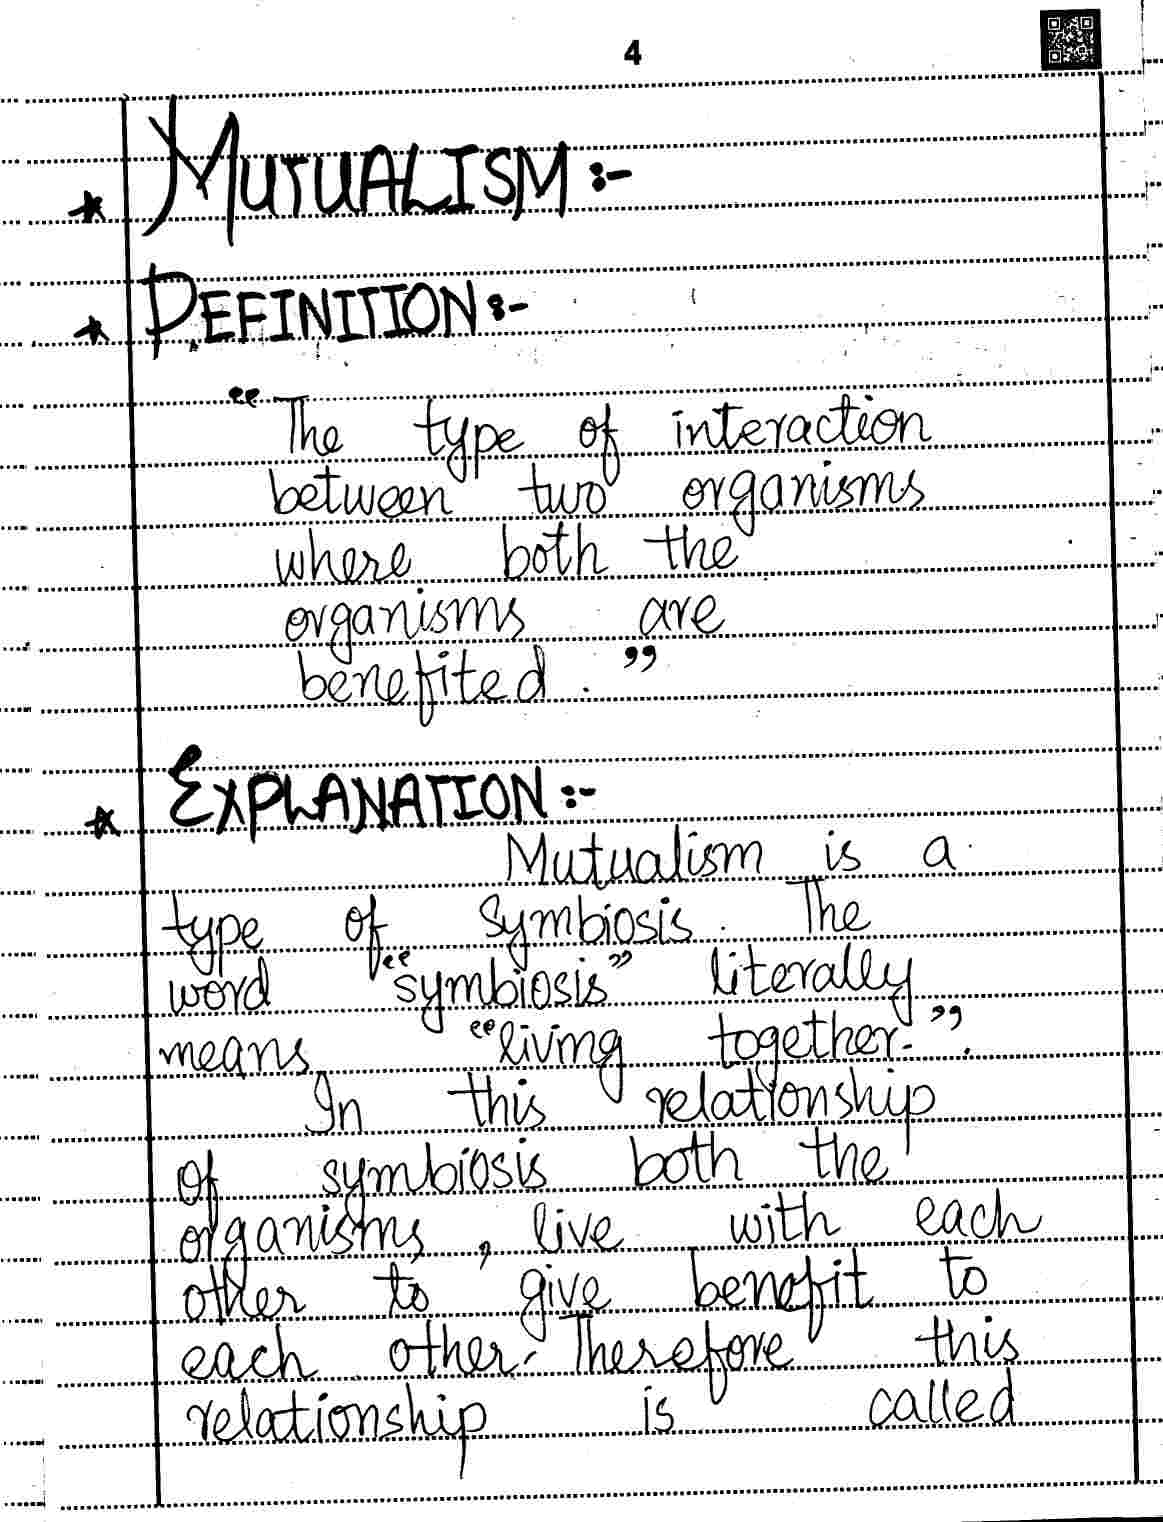 4
* MUTUALISM :-
* DEFINITION :-
“The type of interaction
between two organisms
where both the
organisms are
benefited.”
* EXPLANATION :-
Mutualism is a
type of symbiosis. The
word “symbiosis” literally
means “living together.”.
In this relationship
of symbiosis both the
organisms, live with each
other to give benefit to
each other. Therefore this
relationship is called